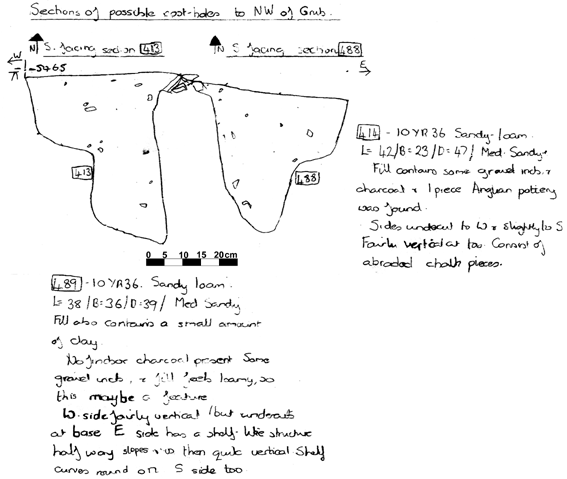 Sections of possible post-holes to NW of Grub.
N S. facing section 413
N S facing section 488
W
-5465
E
413
488
0 5 10 15 20cm
414 - 10YR36 Sandy-loam.
L= 42/B=23/D=47/ Med. Sandy.
Fill contains some gravel incls, &
charcoal & 1 piece Anglian pottery
was found.
Sides undercut to W & slightly to S
Fairly vertical at top. Consist of
abraded chalk pieces.
489 - 10YR36. Sandy loam.
L= 38/B=36/D=39/ Med Sandy
Fill also contains a small amount
of clay.
No finds or charcoal present Some
gravel incls, & fill feels loamy, so
this maybe a feature
W. side fairly vertical /but undercuts
at base E side has a shelf-like structure
half way slopes then quite vertical Shelf
curves round on S side too